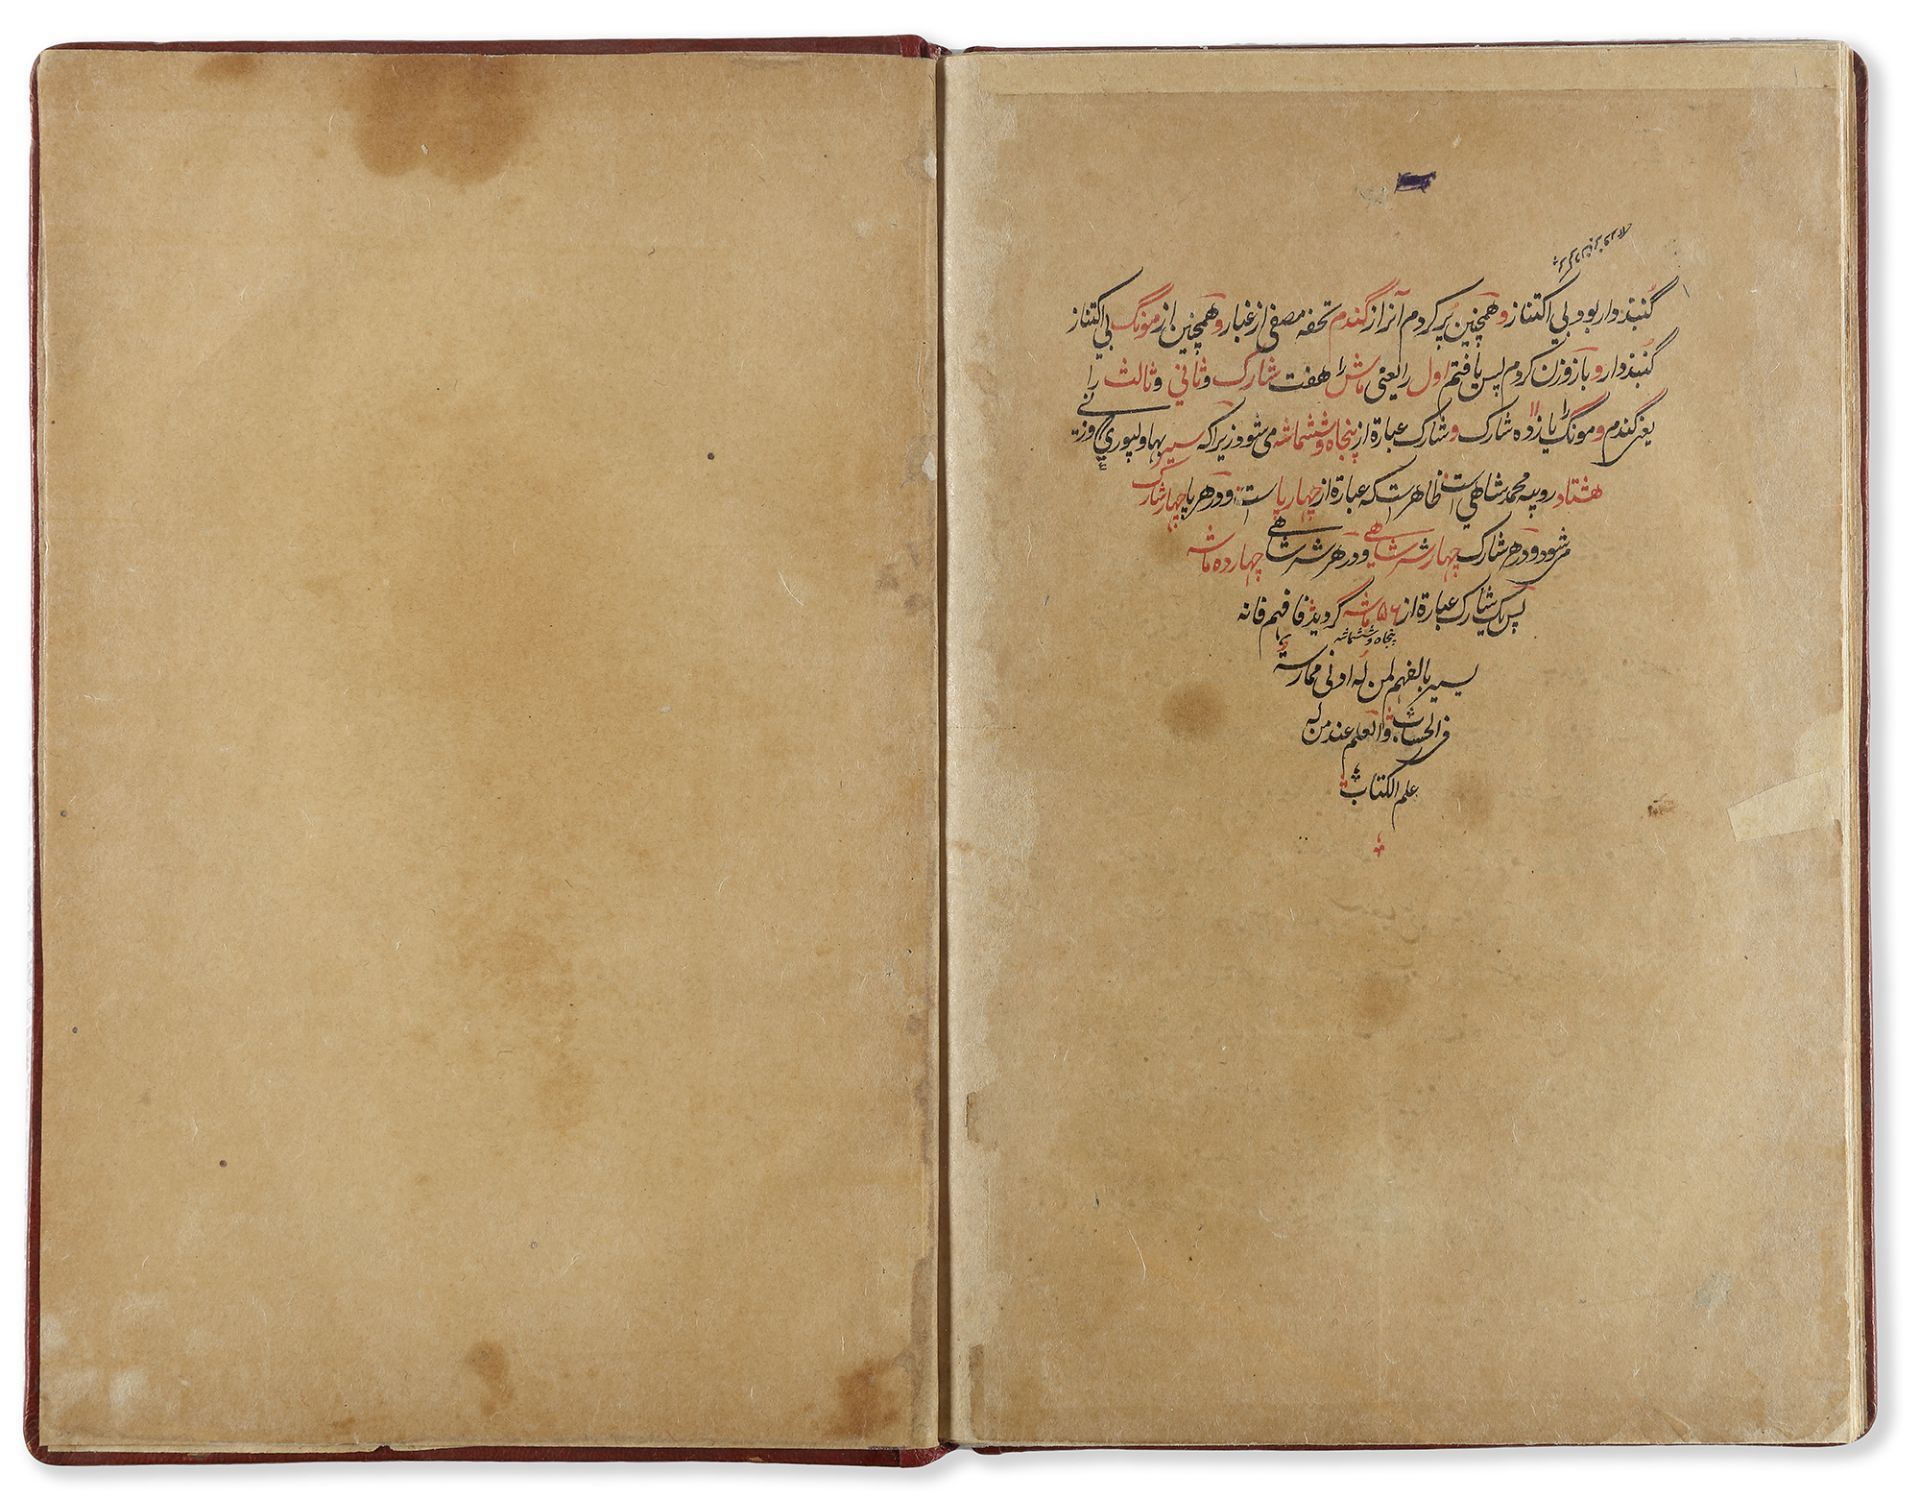 گنبذدار بود بی اکتناز و همچنین پر کردم آنرا از گندم تحفه مصفی از غبار و همچنین از مونگ بی اکتناز
گنبذدار و باز وزن کردم پس یافتم اول را یعنی ماش را هفت شارک و ثانی و ثالث را
یعنی گندم و مونگ را یازده شارک و شارک عبارة از پنجاه و ششماشه می شود زیرا که سیر بهاولپوری وزنے
هشتاد روپیه محمد شاهی است ظاهر است که عبارة از چهار پا است و در هر پا چهار شارک
می شود و در هر شارک چهار سرشاهی و در هر سرشاهی چهارده ماشه
پس یک شارک عبارة از ۵۶ ماشه گردید فافهم فانه
پنجاه و ششماشه
یسیر بالفهم لمن له ادنی ممارسة
فی الحساب والعلم عند من له
علم الکتاب